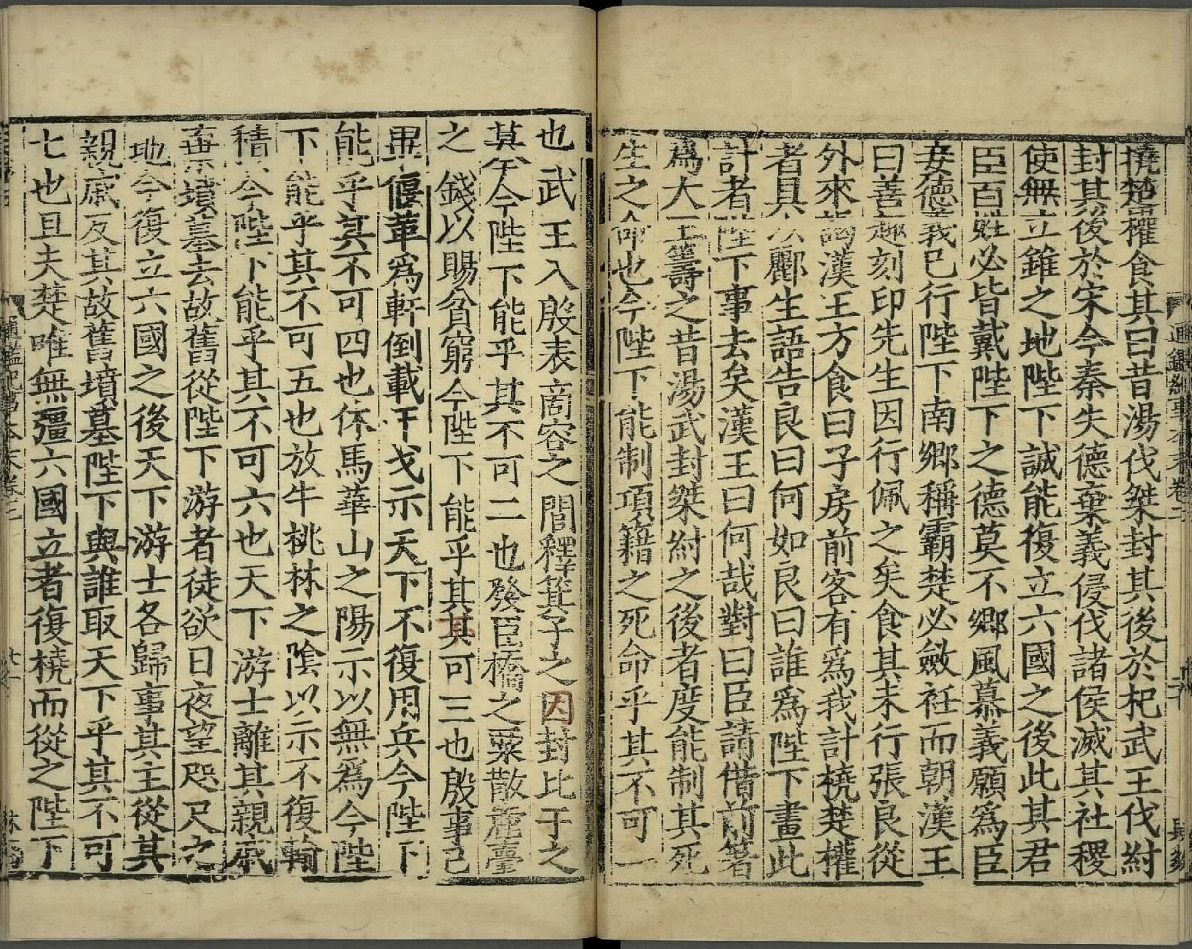 撓楚權食其曰昔湯伐桀封其後於杞武王伐紂
封其後於宋今秦失德棄義侵伐諸侯滅其社稷
使無立錐之地陛下誠能復立六國之後此其君
臣百姓必皆戴陛下之德莫不鄉風慕義願爲臣
妾德義已行陛下南鄉稱霸楚必斂衽而朝漢王
曰善趣刻印先生因行佩之矣食其未行張良從
外來謁漢王方食曰子房前客有爲我計橈楚權
者具以酈生語告良曰何如良曰誰爲陛下畫此
計者陛下事去矣漢王曰何哉對曰臣請借前箸
爲大王籌之昔湯武封桀紂之後者度能制其死
生之命也今陛下能制項籍之死命乎其不可一
也武王入殷表商容之閭釋箕子之囚封比干之
其今陛下能乎其不可二也發臣橋之粟散鹿臺
之錢以賜貧窮今陛下能乎其其可三也殷事已
畢偃革爲軒倒載干戈示天下不復用兵今陛下
能乎其不可四也休馬華山之陽示以無爲今陛
下能乎其不可五也放牛桃林之陰以示不復輸
積今陛下能乎其不可六也天下游士離其親戚
棄墳墓去故舊從陛下游者徒欲日夜望咫尺之
地今復立六國之後天下游士各歸事其主從其
親戚反其故舊墳墓陛下與誰取天下乎其不可
七也且夫楚唯無彊六國立者復橈而從之陛下
通鑑紀事本末卷二